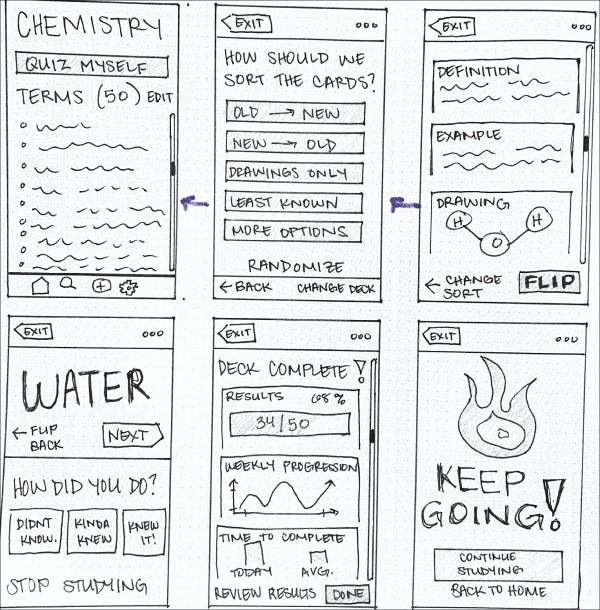 CHEMISTRY
QUIZ MYSELF
TERMS (50) EDIT
EXIT
HOW SHOULD WE
SORT THE CARDS?
OLD → NEW
NEW → OLD
DRAWINGS ONLY
LEAST KNOWN
MORE OPTIONS
RANDOMIZE
← BACK CHANGE DECK
EXIT
DEFINITION
EXAMPLE
DRAWING
H O H
← CHANGE
SORT
FLIP
EXIT
WATER
← FLIP
BACK
NEXT
HOW DID YOU DO?
DIDNT
KNOW.
KINDA
KNEW
KNEW
IT!
STOP STUDYING
EXIT
DECK COMPLETE!
RESULTS 68%
34/50
WEEKLY PROGRESSION
TIME TO COMPLETE
TODAY AVG.
REVIEW RESULTS DONE
EXIT
KEEP
GOING!
CONTINUE
STUDYING
BACK TO HOME